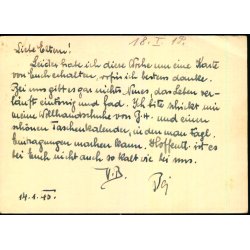 18.I 19.
Liebe Eltern!
Leider habe ich diese Woche nur eine Karte
von Euch erhalten, wofür ich bestens danke.
Bei uns gibt es gar nichts Neues, das Leben ver-
läuft eintönig und fad. Ich bitte schickt mir
meine Wollhandschuhe von G.H. und einen
schönen Taschenkalender, in den man tägl.
Eintragungen machen kann. Hoffentl. ist es
bei Euch nicht auch so kalt wie bei uns.
V.B.
14.1.40.